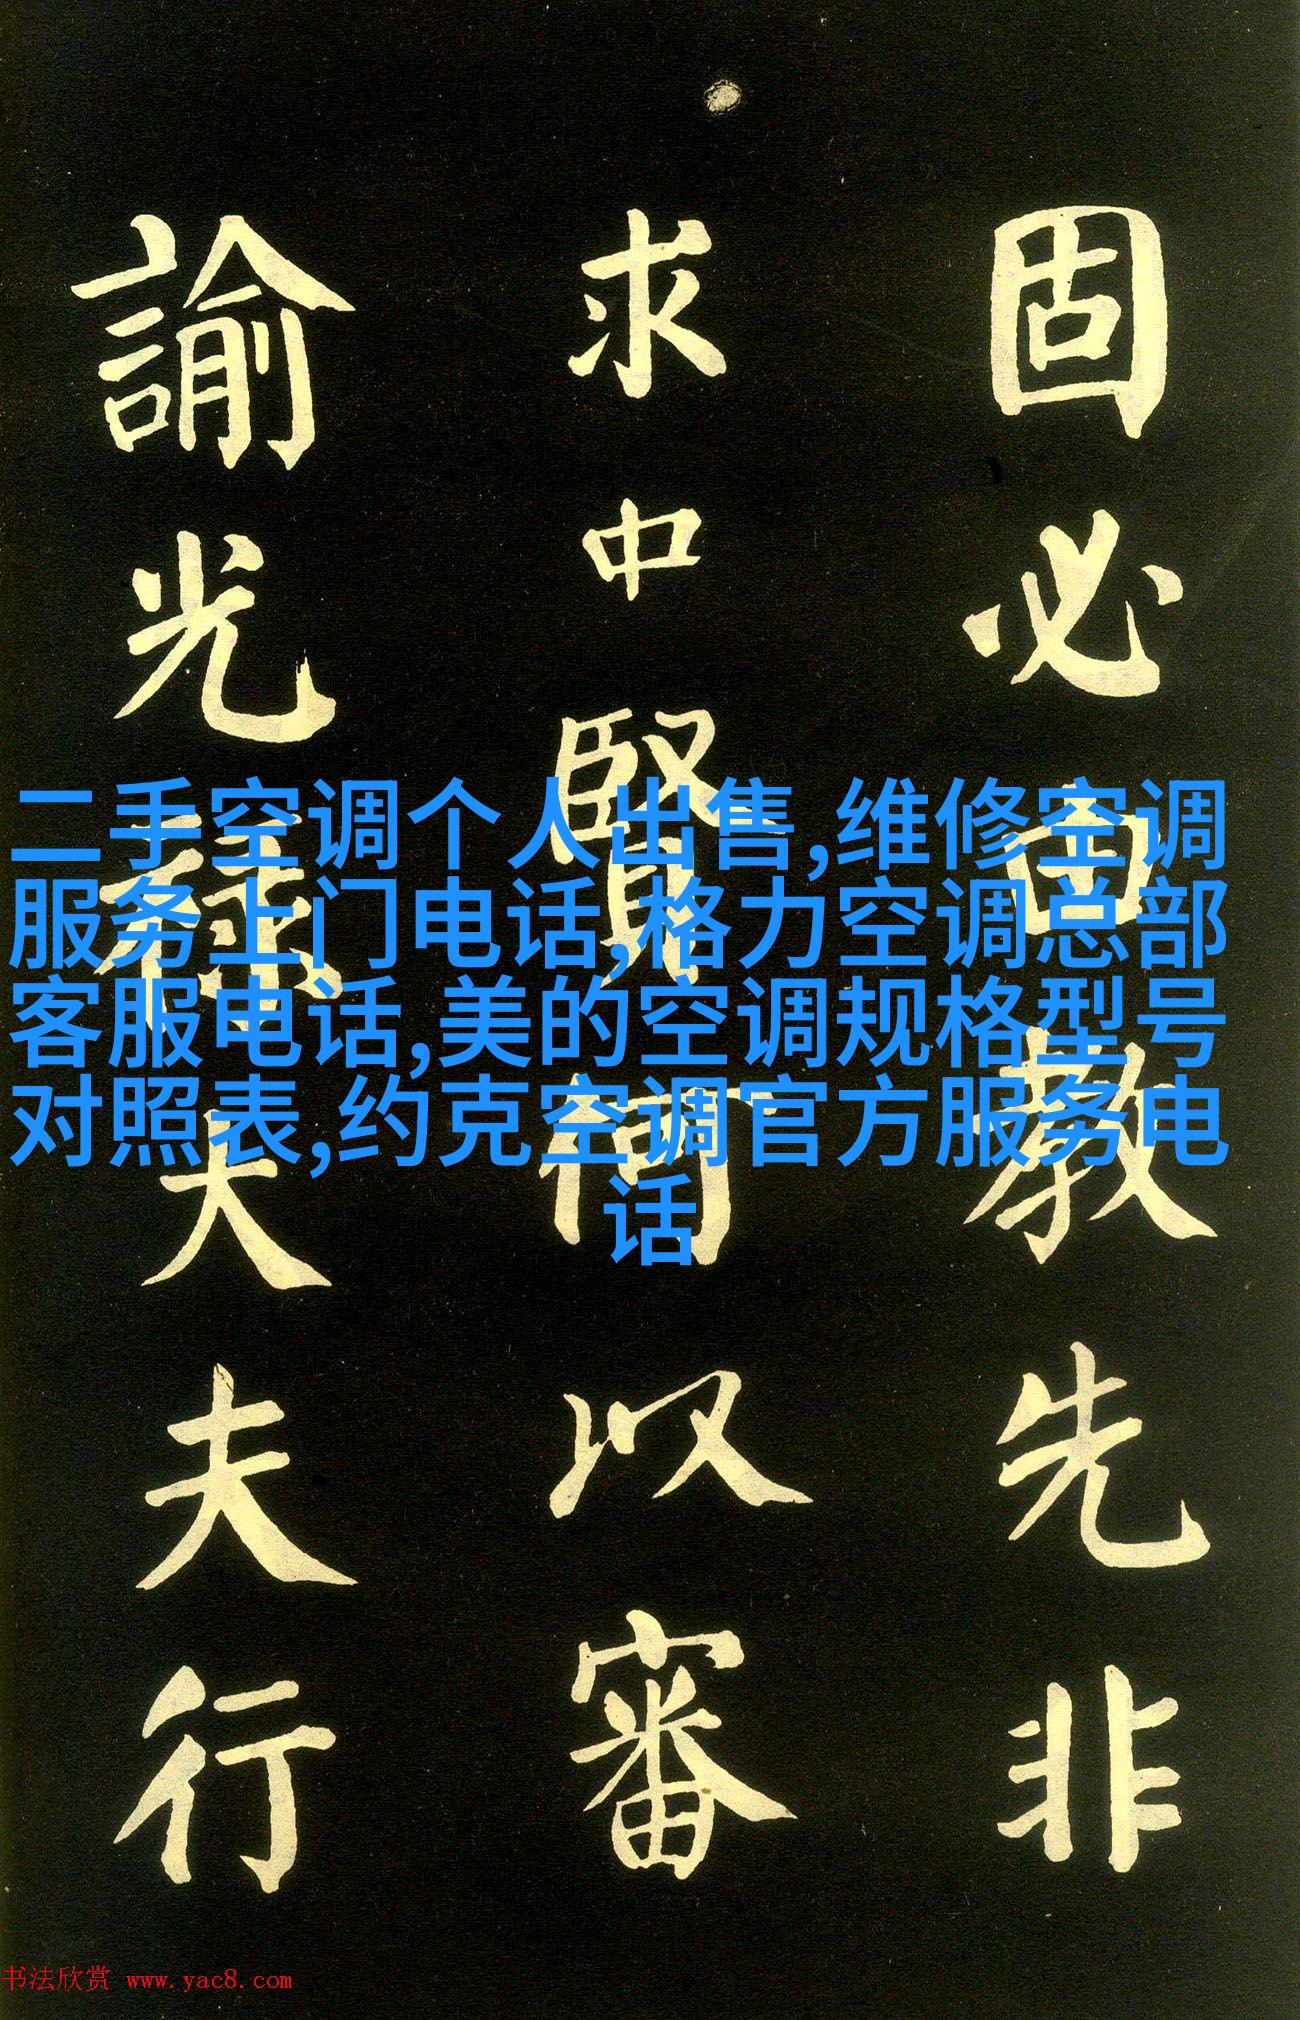 固必由教先非
求中賢何以審
諭光祿大夫行
二手空调个人出售,维修空调
服务上门电话,格力空调总部
客服电话,美的空调规格型号
对照表,约克空调官方服务电
话
书法欣赏 www.yac8.com